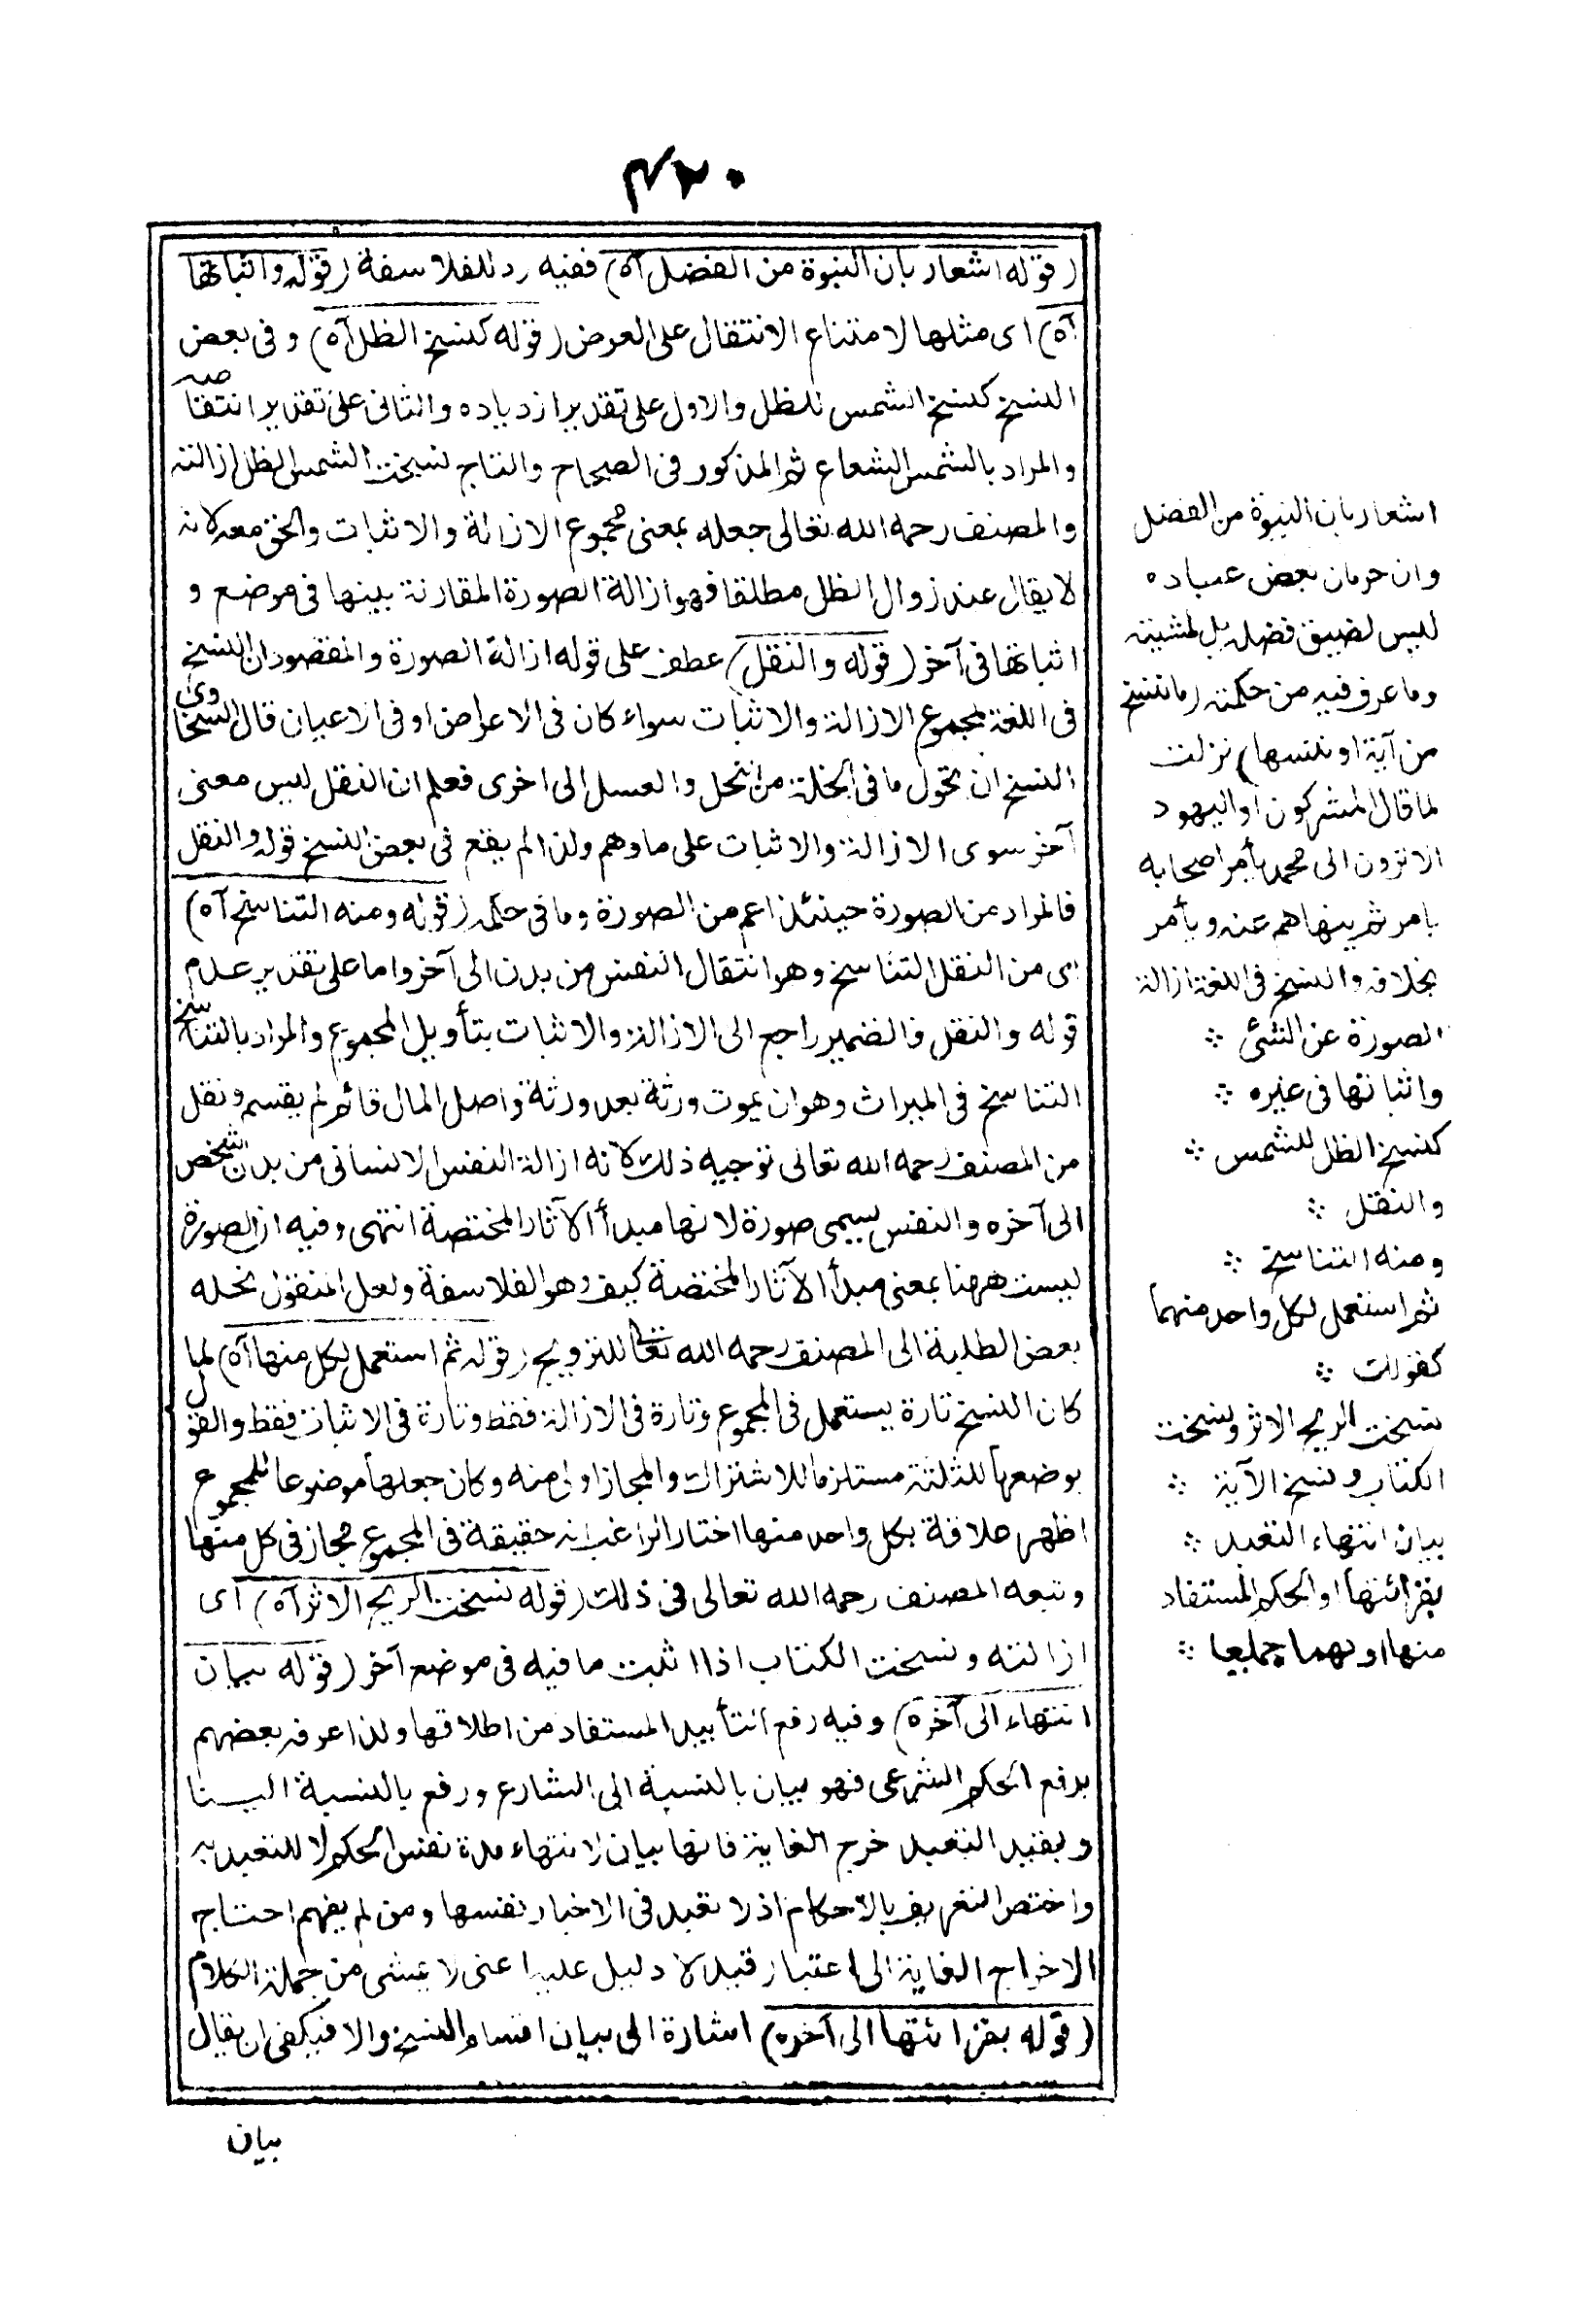 ٤٢٠
(قوله اشعار بان النبوة من الفضل آه) ففيه رد للفلاسفة (قوله واثباتها
آه) اى مثلها لامتناع الانتقال على العرض (قوله كنسخ الظل آه) وفى بعض
النسخ كنسخ الشمس للظل والاول على تقدير ازدياده والثانى على تقدير انتقاصه
والمراد بالشمس الشعاع ثم المذكور فى الصحاح والتاج نسخت الشمس الظل ازالته
والمصنف رحمه الله تعالى جعله بمعنى مجموع الازالة والاثبات والحق معه لانه
لا يقال عند زوال الظل مطلقا فهو ازالة الصورة المقارنة بينها فى موضع و
اثباتها فى آخر (قوله والنقل) عطف على قوله ازالة الصورة والمقصود ان النسخ
فى اللغة لمجموع الازالة والاثبات سواء كان فى الاعراض او فى الاعيان قال السخاوى
النسخ ان تحول ما فى الخلية من النحل والعسل الى اخرى فعلم ان النقل ليس معنى
آخر سوى الازالة والاثبات على ما وهم ولذا لم يقع فى بعض النسخ قوله والنقل
فالمراد من الصورة حينئذ اعم من الصورة وما فى حكمه (قوله ومنه التناسخ آه)
اى من النقل التناسخ وهو انتقال النفس من بدن الى آخر واما على تقدير عدم
قوله والنقل فالضمير راجع الى الازالة والاثبات بتأويل المجموع والمراد بالتناسخ
التناسخ فى الميراث وهو ان يموت ورثة بعد ورثة واصل المال قائم لم يقسم ونقل
من المصنف رحمه الله تعالى توجيه ذلك لانه ازالة النفس الانسانى من بدن الشخص
الى آخره والنفس يسمى صورة لانها مبدأ الآثار المختصة انتهى وفيه ان الصورة
ليست ههنا بمعنى مبدأ الآثار المختصة كيف وهو الفلاسفة ولعل المنقول نحله
بعض الطلبة الى المصنف رحمه الله تعالى للترويج (قوله ثم استعمل لكل منها آه) لما
كان النسخ تارة يستعمل فى المجموع وتارة فى الازالة فقط وتارة فى الاثبات فقط والقول
بوضعها للثلثة مستلزما للاشتراك والمجاز اولى منه وكان جعلها موضوعا للمجموع
اظهر علاقة بكل واحد منها اختار الراغب انه حقيقة فى المجموع مجاز فى كل منها
وتبعه المصنف رحمه الله تعالى فى ذلك (قوله نسخت الريح الاثر آه) اى
ازالته ونسخت الكتاب اذا اثبت ما فيه فى موضع آخر (قوله بيان
انتهاء الى آخره) وفيه رفع التأبيد المستفاد من اطلاقها ولذا عرفه بعضهم
برفع الحكم الشرعى فهو بيان بالنسبة الى الشارع ورفع بالنسبة الينا
وبقيد التعبد خرج الغاية فانها بيان لانتهاء مدة نفس الحكم لا للتعبد به
واختص التعريف بالاحكام اذ لا تعبد فى الاخبار نفسها ومن لم يفهم احتاج
الاخراج الغاية الى اعتبار قيد لا دليل عليه اعنى من جملة الكلام
(قوله بقرائتها الى آخره) اشارة الى بيان اقسام النسخ والا فيكفى ان يقال
بيان
اشعار بان النبوة من الفضل
وان حرمان بعض عباده
ليس لضيق فضله بل لمشيئته
وما عرف فيه من حكمته (ما ننسخ
من آية او ننسها) نزلت
لما قال المشركون او اليهود
الا ترون الى محمد يأمر اصحابه
بامر ثم ينهاهم عنه ويأمر
بخلافه والنسخ فى اللغة ازالة
الصورة عن الشئ
واثباتها فى غيره
كنسخ الظل للشمس
والنقل
ومنه التناسخ
ثم استعمل لكل واحد منهما
كقولك
نسخت الريح الاثر ونسخت
الكتاب ونسخ الآية
بيان انتهاء التعبد
بقرائتها او الحكم المستفاد
منها او بهما جميعا